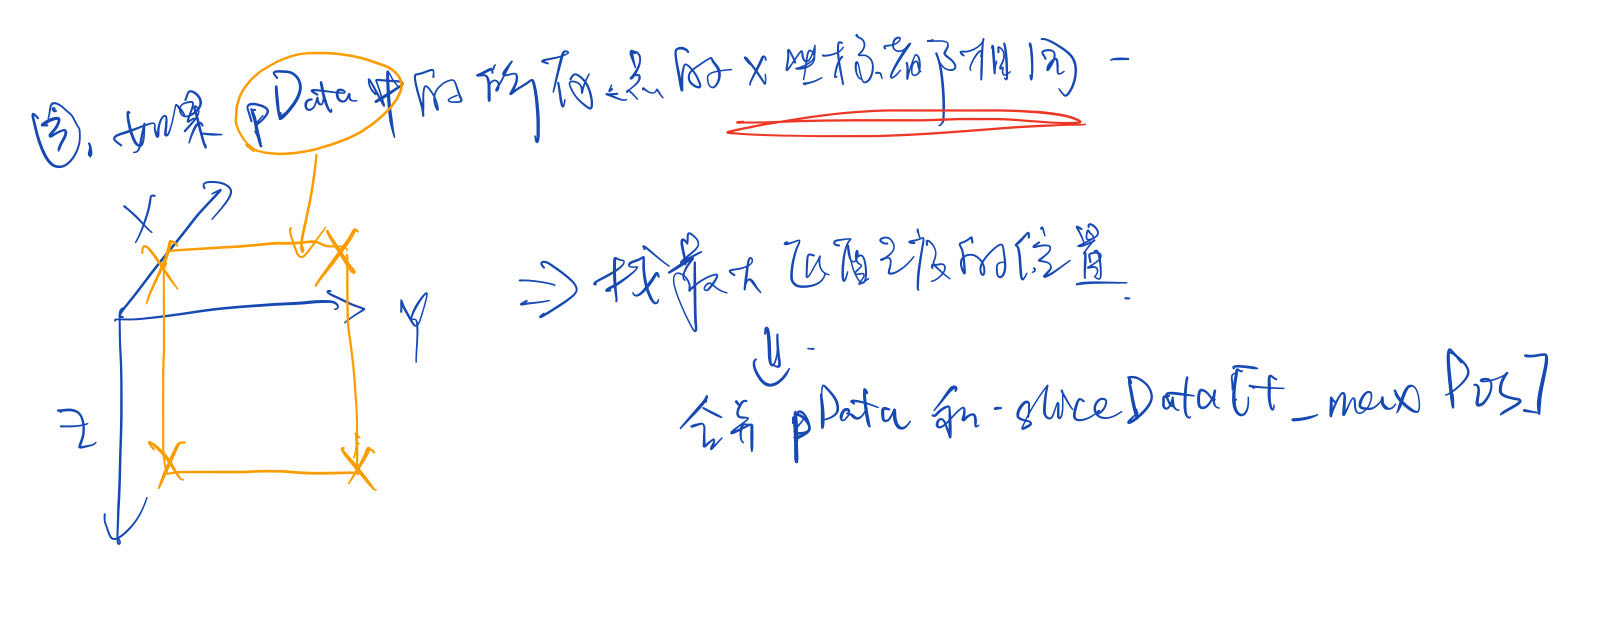 ③. 如果 pData中的所有点的 X 坐标都相同
X
Y
Z
⇒ 找最大匹配程度的位置
⇓
合并 pData 和 sliceData[t_maxPos]